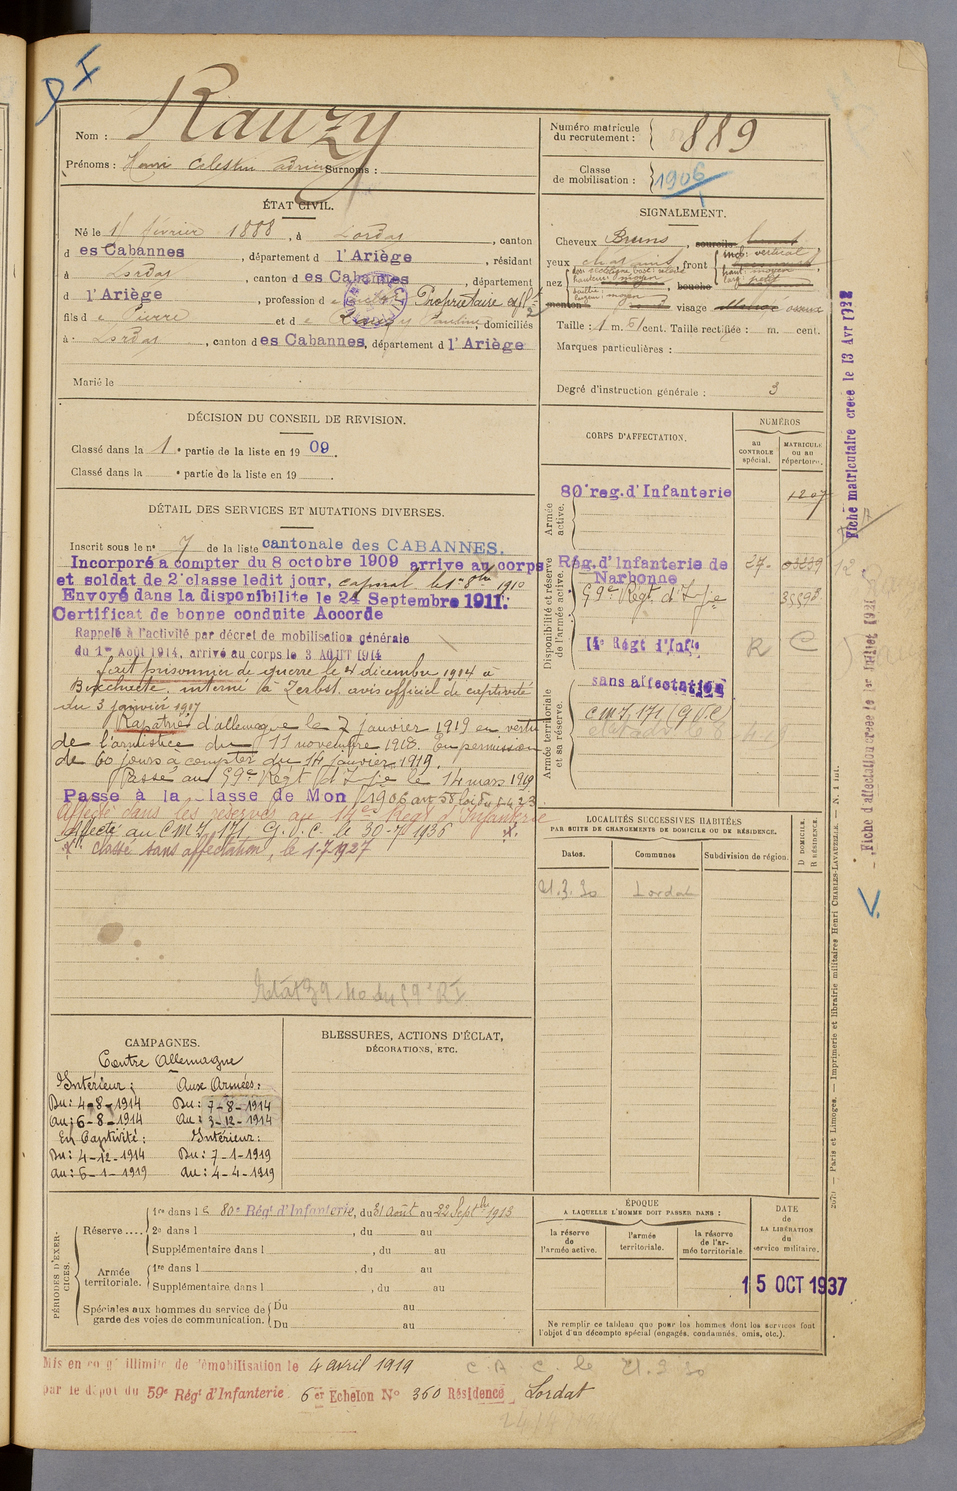 Nom : Rauzy
Prénoms : Henri Celestin Adrien Surnoms :
Numéro matricule du recrutement : 889
Classe de mobilisation : 1906
ÉTAT CIVIL.
Né le février 1888, à Lordat, canton
d es Cabannes, département d l'Ariège, résidant
à Lordat, canton d es Cabannes, département
d l'Ariège, profession d e Propriétaire expl
fils d e Pierre et d e Pauline, domiciliés
à Lordat, canton d es Cabannes, département d l'Ariège
Marié le
SIGNALEMENT.
Cheveux Bruns, sourcils
yeux chatains, front incl: vertical
haut: moyen
larg: petit
nez dos rectiligne base: relevée
hauteur: moyen
saillie
largeur: moyen
bouche
menton visage osseux
Taille : 1 m. 61 cent. Taille rectifiée : m. cent.
Marques particulières :
Degré d'instruction générale : 3
DÉCISION DU CONSEIL DE REVISION.
Classé dans la 1e partie de la liste en 1909.
Classé dans la e partie de la liste en 19
DÉTAIL DES SERVICES ET MUTATIONS DIVERSES.
Inscrit sous le n° 7 de la liste cantonale des CABANNES.
Incorporé à compter du 8 octobre 1909 arrivé au corps
et soldat de 2e classe ledit jour, caporal le 1er 8bre 1910
Envoyé dans la disponibilité le 24 Septembre 1911.
Certificat de bonne conduite Accordé
Rappelé à l'activité par décret de mobilisation générale
du 1er Août 1914, arrivé au corps le 3 AOUT 1914
Fait prisonnier de guerre le 4 décembre 1914 à
interné à Zerbst, avis officiel de captivité
du 3 janvier 1917
Rapatrié d'allemagne le 7 janvier 1919 en vertu
de l'armistice du 11 novembre 1918. En permission
de 60 jours à compter du 14 janvier 1919.
Passé au 59e Régt d'Ife le 14 mars 1919
Passé à la Classe de Mon 1906 art 58 loi du 1-4-23
Affecté dans les réserves au 14e Régt d'Infanterie
Affecté au C M I, 171 G. V. C. le 30-7-1936
Classé sans affectation, le 1-7-1927
Etat 39 du 59e RI
CORPS D'AFFECTATION.
NUMÉROS
au CONTROLE spécial.
MATRICULE ou au répertoire.
Armée active.
80e reg. d'Infanterie 1207
Disponibilité et réserve de l'armée active.
Rég. d'Infanterie de Narbonne 27- 03239
59e Regt d'Ife 35598
14e Régt d'Infie R C
Armée territoriale et sa réserve.
sans affectation
C M I, 171 (G V C)
LOCALITÉS SUCCESSIVES HABITÉES
PAR SUITE DE CHANGEMENTS DE DOMICILE OU DE RÉSIDENCE.
Dates. Communes Subdivision de région.
D DOMICILE.
R RÉSIDENCE.
21.3.30 Lordat
CAMPAGNES.
Contre Allemagne
Intérieur: Aux Armées:
Du: 4-8-1914 Du: 7-8-1914
au: 6-8-1914 au: 3-12-1914
En Captivité: Intérieur:
Du: 4-12-1914 Du: 7-1-1919
au: 6-1-1919 au: 4-4-1919
BLESSURES, ACTIONS D'ÉCLAT,
DÉCORATIONS, ETC.
PÉRIODES D'EXERCICES.
Réserve....
1re dans l e 80e Régt d'Infanterie, du 31 août au 22 Septbre 1913
2e dans l , du au
Supplémentaire dans l , du au
Armée territoriale.
1re dans l , du au
Supplémentaire dans l , du au
Spéciales aux hommes du service de garde des voies de communication.
Du au
Du au
ÉPOQUE
A LAQUELLE L'HOMME DOIT PASSER DANS :
la réserve de l'armée active.
l'armée territoriale.
la réserve de l'armée territoriale
DATE de LA LIBÉRATION du service militaire.
15 OCT 1937
Ne remplir ce tableau que pour les hommes dont les services font
l'objet d'un décompte spécial (engagés, condamnés, omis, etc.).
Mis en congé illimité de démobilisation le 4 avril 1919
par le dépôt du 59e Régt d'Infanterie 6er Echelon No 360 Résidence Lordat
C. A. C. le 21.3.30
Fiche matriculaire créée le 13 Avr 1922
Fiche d'affectation créée le 1er Juillet 1921
V.
Paris et Limoges. — Imprimerie et librairie militaires Henri CHARLES-LAVAUZELLE. — N. 1